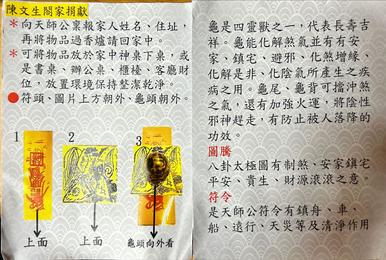 陳文生閤家捐獻
*向天師公稟報家人姓名、住址,
再將物品過香爐請回家中。
*可將物品放於家中神桌下桌,或
是書桌、辦公桌、櫃檯、客廳財
位,放置環境保持整潔乾淨。
●符頭、圖片上方朝外、龜頭朝外。
1
2
3
上面
上面
龜頭向外看
龜是四靈獸之一,代表長壽吉
祥。龜能化解煞氣並有有安
家、鎮宅、避邪、化煞增緣、
化解是非、化陰氣所產生之疾
病之用。龜尾、龜背可擋沖煞
之氣,還有加強火運,將陰性
邪神趕走,有防止被人落降的
功效。
圖騰
八卦太極圖有制煞、安家鎮宅
平安、貴生、財源滾滾之意。
符令
是天師公符令有鎮舟、車、
船、遠行、天災等及清淨作用